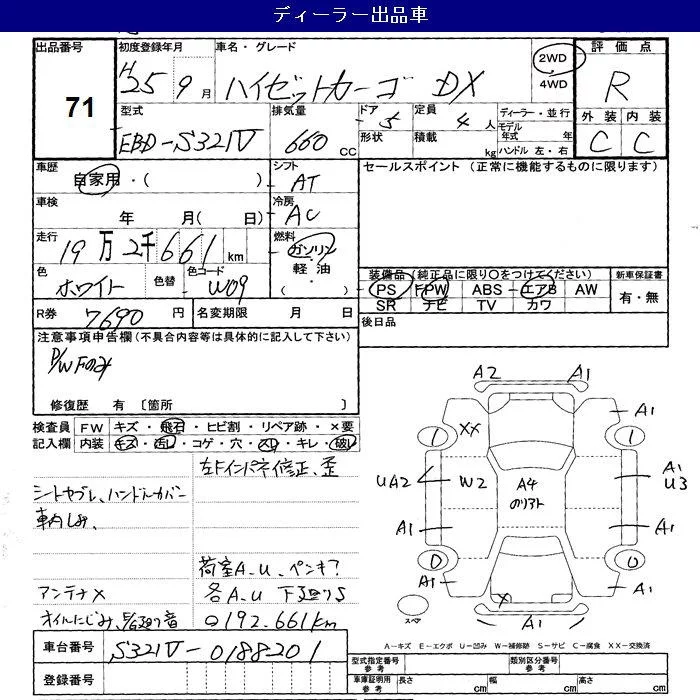 ディーラー出品車
出品番号 71
初度登録年月 H25年9月
車名・グレード ハイゼットカーゴ DX
2WD 4WD
評価点 R
外装 内装
C C
型式 EBD-S321V
排気量 660cc
ドア 5
形状
定員 4人
積載 kg
ディーラー・並行
モデル年式 年
ハンドル 左・右
車歴 自家用・( )
シフト AT
セールスポイント (正常に機能するものに限ります)
車検 年 月( 日)
冷房 AC
走行 19万2千661km
燃料 ガソリン・軽油・( )
色 ホワイト
色替
色コード W09
装備品 (純正品に限り○をつけてください)
PS FPW ABS エアB AW
SR ナビ TV カワ
新車保証書
有・無
R券 7690円
名変期限 月 日
後日品
注意事項申告欄 (不具合内容等は具体的に記入して下さい)
P/W Fのみ
修復歴 有 〔箇所 〕
検査員記入欄
FW キズ・飛石・ヒビ割・リペア跡・×要
内装 キズ・汚レ・コゲ・穴・スレ・キレ・破レ
左Fインパネ修正、歪
シートヤブレ、ハンドルカバー
車内しみ、
荷室A.U、ペンキ?
アンテナ× 各A.U 下廻りS
オイルにじみ、足廻り音 ○192.661km
A2 A1
XX A1
UA2 W2 A4 のりアト A1 U3
A1 A1
A1 X A1
A1
スペア
A…キズ E…エクボ U…凹み W…補修跡 S…サビ C…腐食 XX…交換済
車台番号 S321V-0188201
登録番号
型式指定番号 参考
類別区分番号 参考
車庫証明用 参考 長さ cm 幅 cm 高さ cm